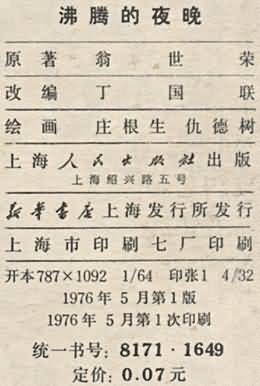 沸腾的夜晚
原著 翁世荣
改编 丁国联
绘画 庄根生 仇德树
上海人民出版社出版
上海绍兴路五号
新华书店上海发行所发行
上海市印刷七厂印刷
开本787×1092 1/64 印张1 4/32
1976年5月第1版
1976年5月第1次印刷
统一书号：8171·1649
定价：0.07元